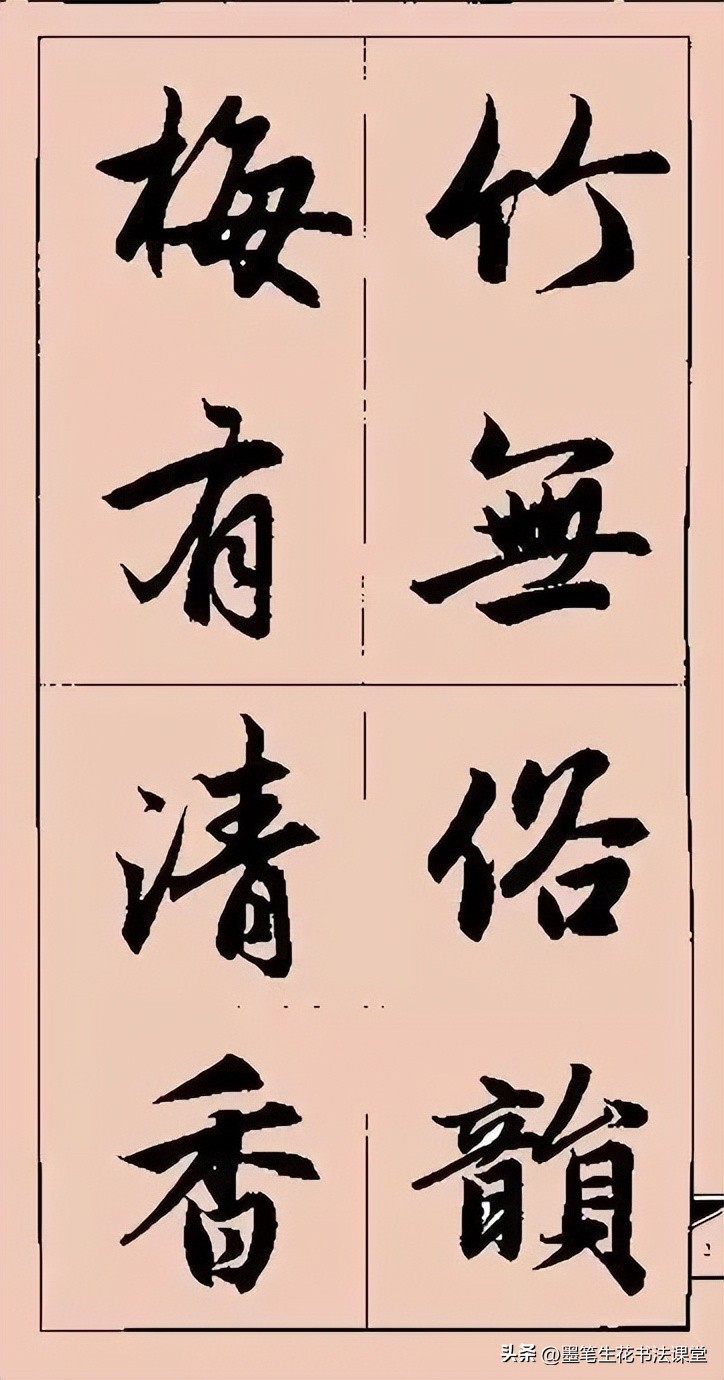 竹無俗韻
梅有清香
头条 @墨笔生花书法课堂